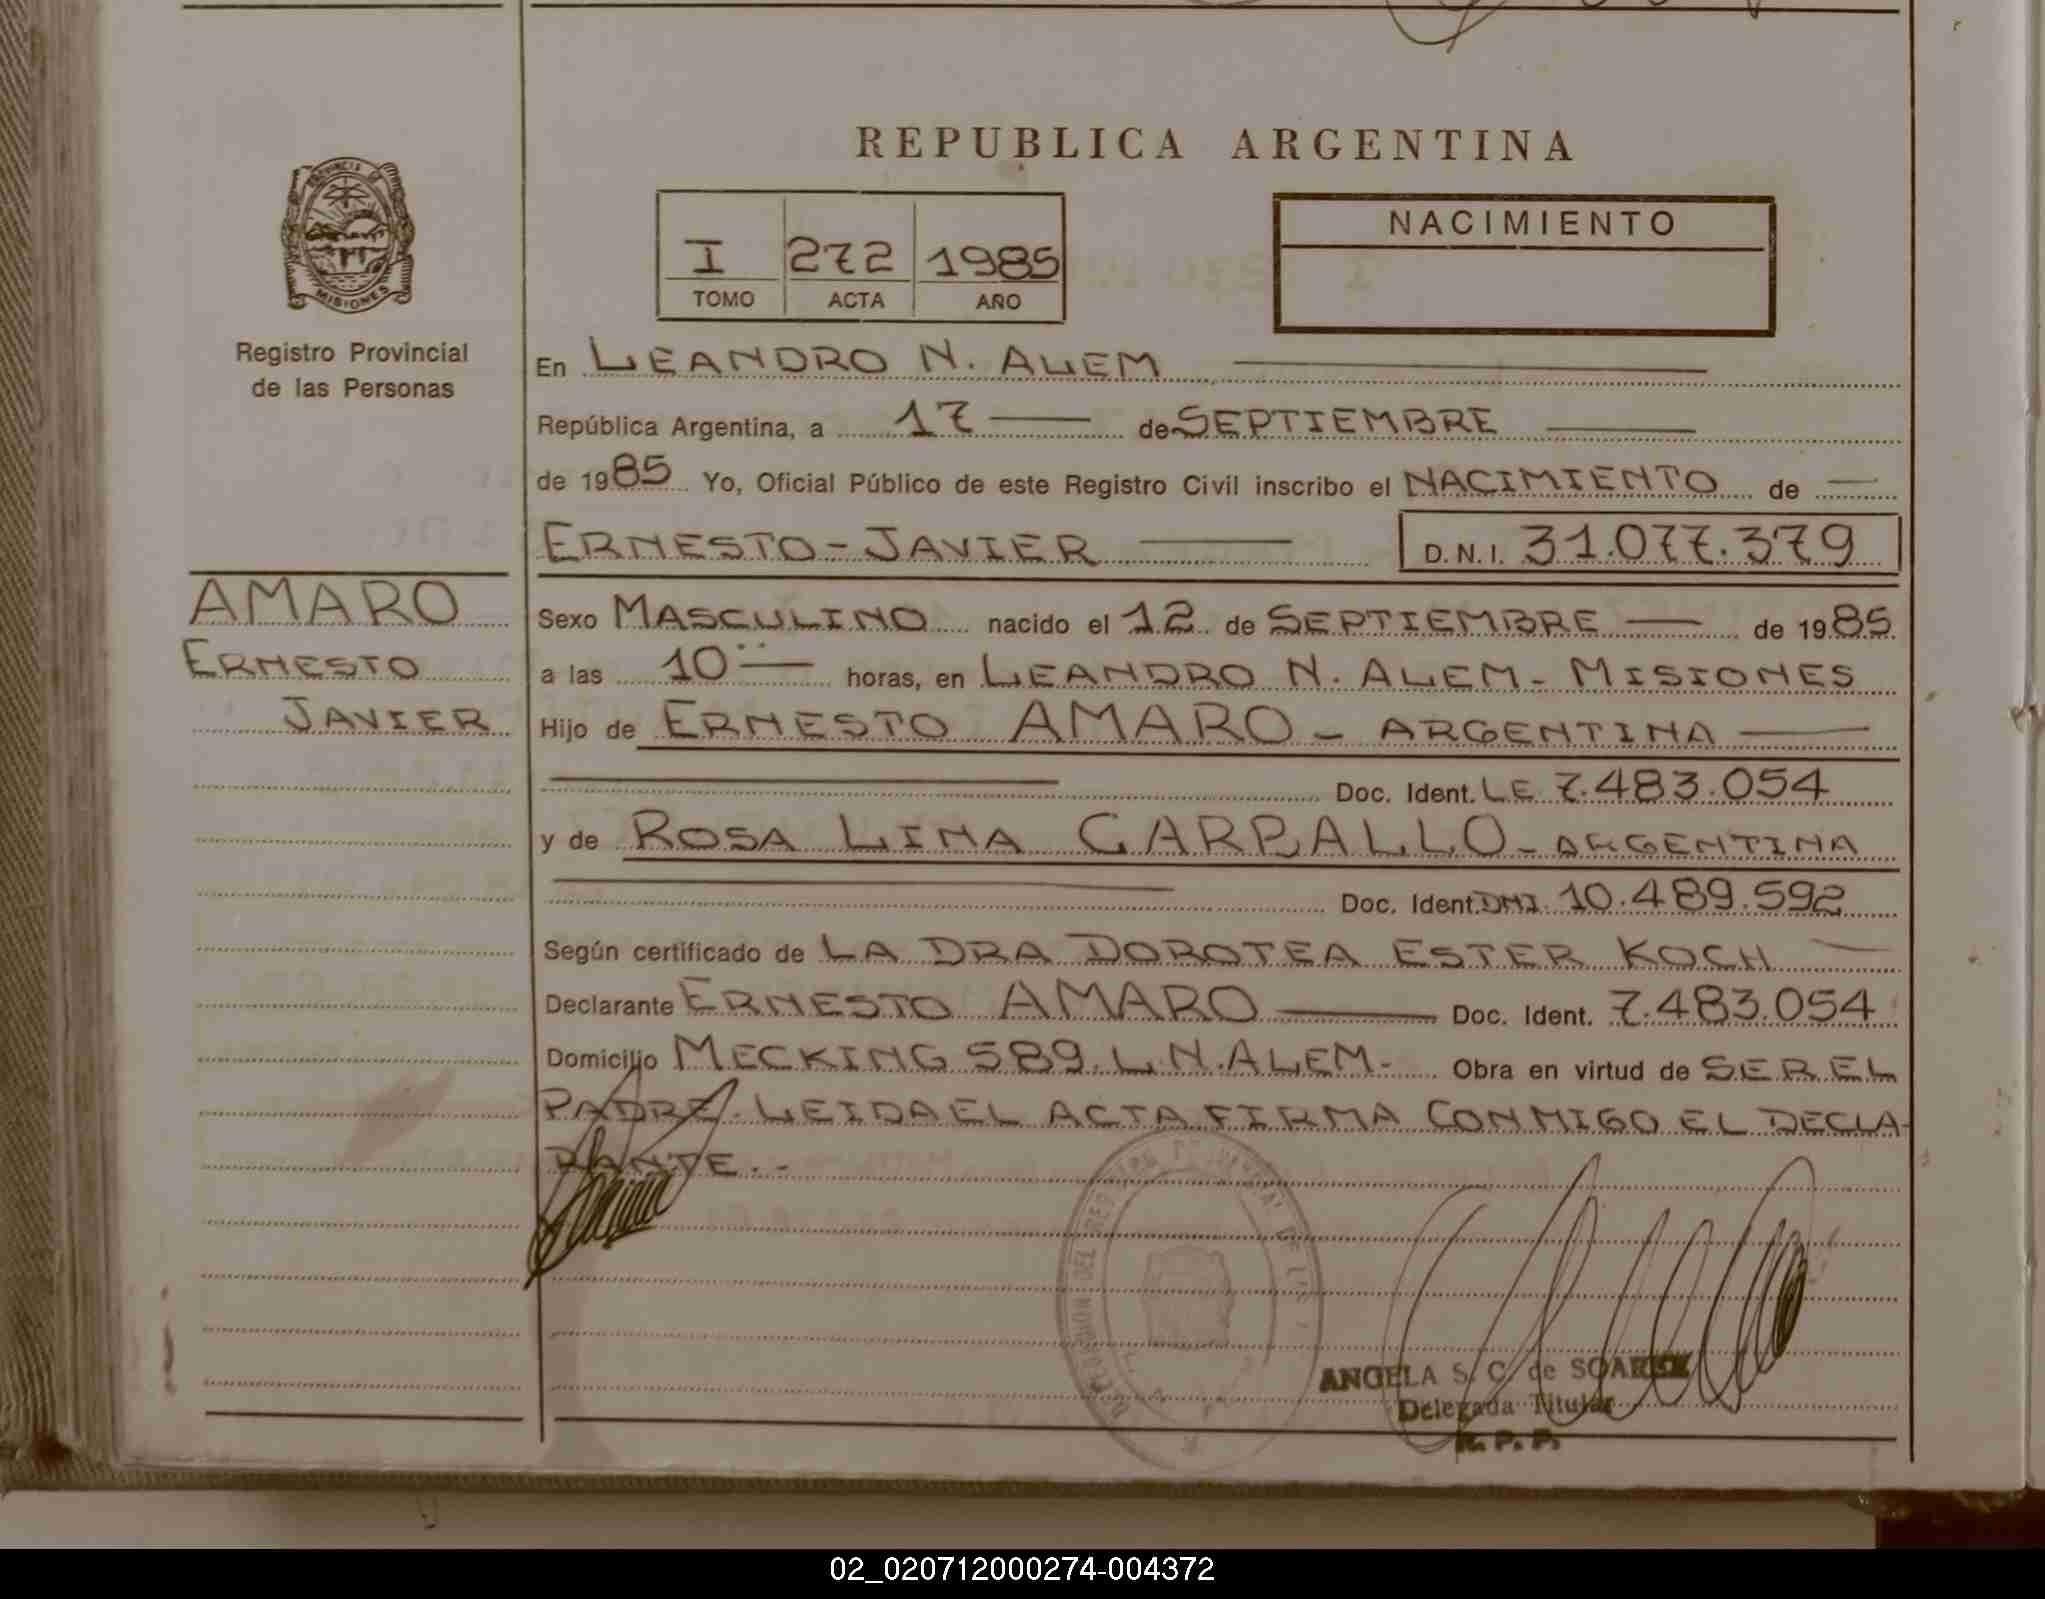 REPUBLICA ARGENTINA
PROVINCIA DE
MISIONES
Registro Provincial
de las Personas
I 272 1985
TOMO ACTA AÑO
NACIMIENTO
En LEANDRO N. ALEM
República Argentina, a 17 de SEPTIEMBRE
de 1985 Yo, Oficial Público de este Registro Civil inscribo el NACIMIENTO de
ERNESTO-JAVIER D.N.I. 31.077.379
AMARO
ERNESTO
JAVIER
Sexo MASCULINO nacido el 12 de SEPTIEMBRE de 1985
a las 10 horas, en LEANDRO N. ALEM - MISIONES
Hijo de ERNESTO AMARO - ARGENTINA
Doc. Ident. LE 7.483.054
y de ROSA LINA CARBALLO - ARGENTINA
Doc. Ident. DNI. 10.489.592
Según certificado de LA DRA DOROTEA ESTER KOCH
Declarante ERNESTO AMARO Doc. Ident. 7.483.054
Domicilio MECKING 589. L.N. ALEM.- Obra en virtud de SER EL
PADRE. LEIDA EL ACTA FIRMA CONMIGO EL DECLA-
RANTE.-
ANGELA S. C. de
Delegada Titular
R. P. P.
02_020712000274-004372